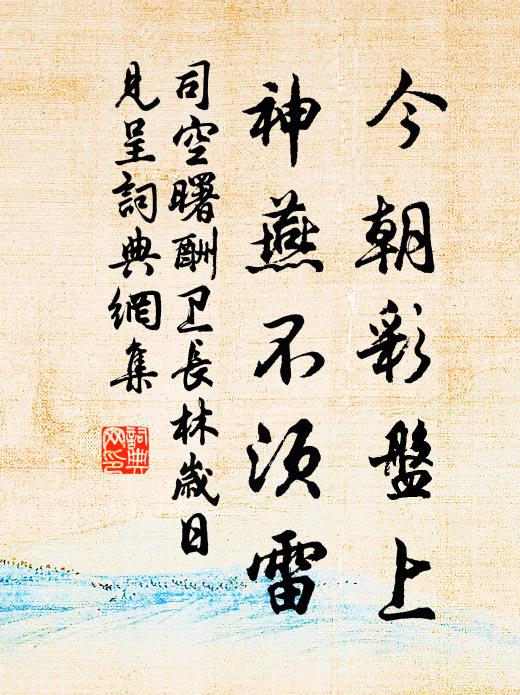 今朝彩盤上
神燕不須雷
司空曙酬卫長林歲日
見呈詞典網集
詞典
网印